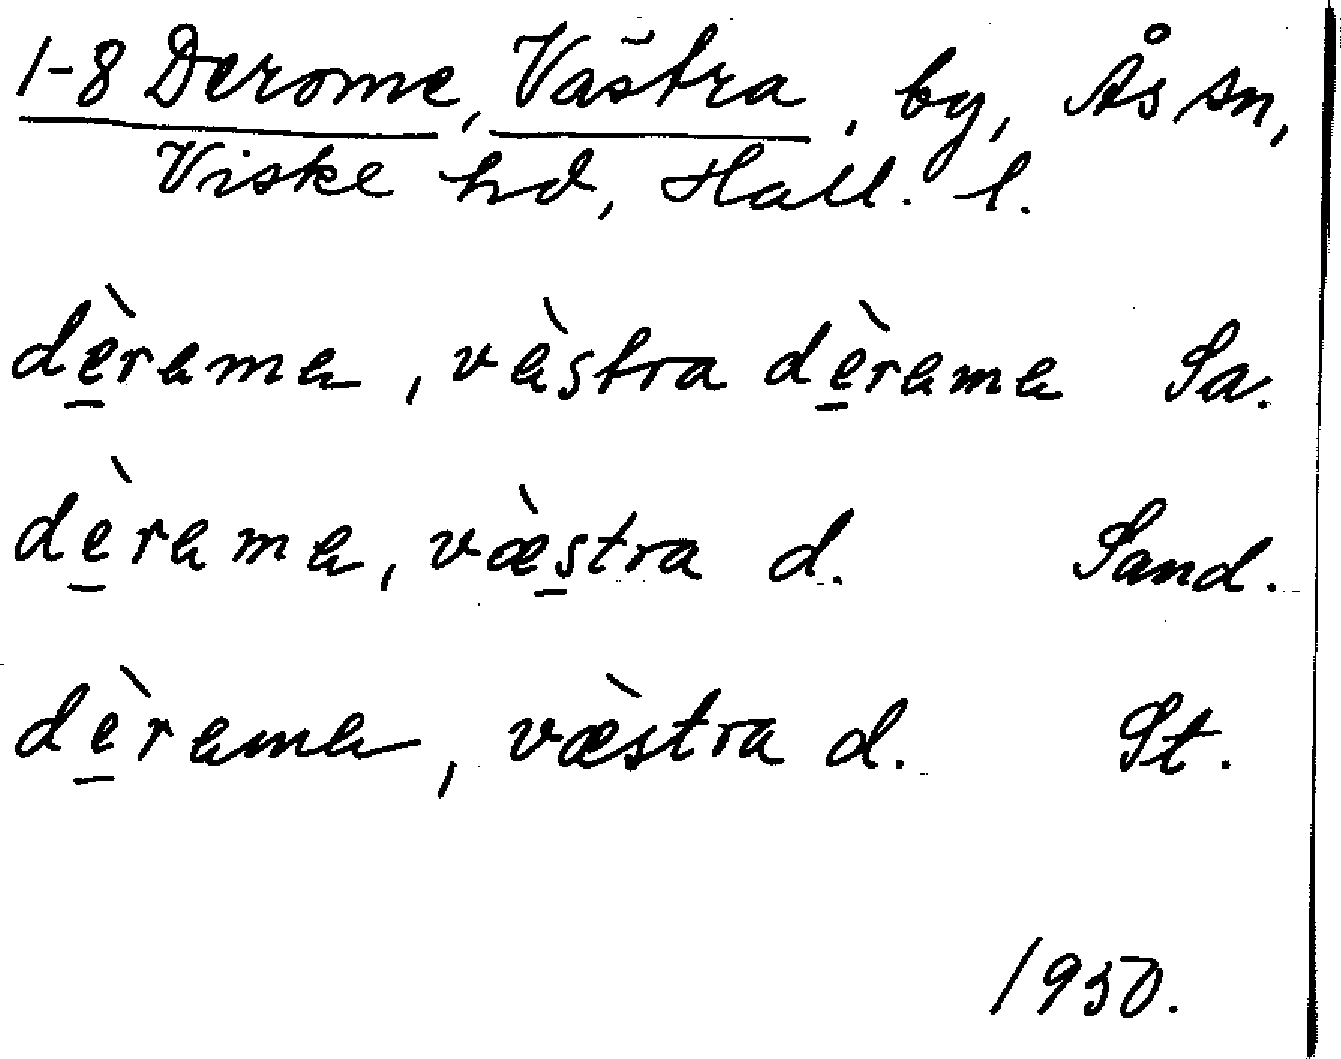 1-8 Derome, Västra, by, Ås sn,
Viske hd, Hall. l.
dèrama, vèstra dèrama Sa.
dèrama, væ̀stra d. Sand.
dèrama, væ̀stra d. St.
1950.